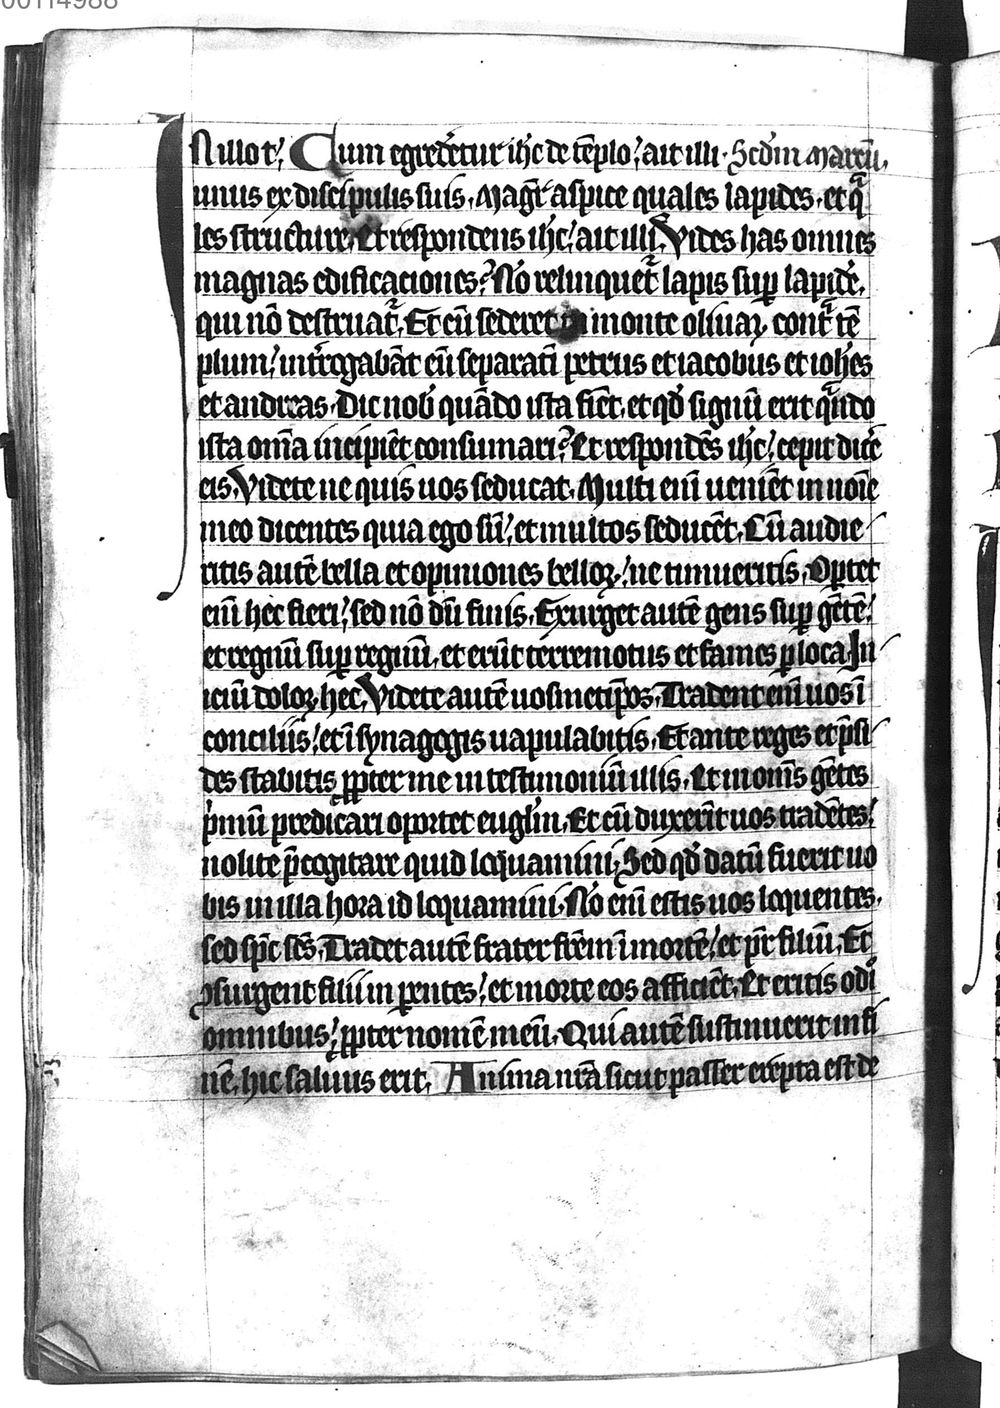 00114988
IN illo t̄. Cum egrederetur ih̄c de tēplo, ait illi. Scd̄m Marcū.
unus ex discipulis suis. Maḡr aspice quales lapides. et qͣ
les structure. Et respondens ih̄c, ait illi. Vides has omnes
magnas edificaciones? Nō relinquet̄ lapis sup̄ lapidē.
qui nō destruat̄. Et cū sederet in monte oliuaꝝ cont̄ tē
plum, int̄rogabāt eū separati petrus et iacobus et ioh̄es
et andreas. Dic nob̄ quādo ista fiēt. et qd̄ signū erit qͣndo
ista om̄a incipiēt consumari? Et respondēs ih̄c, cepit dic̄e
eis. Videte ne quis uos seducat. Multi enī ueniēt in noīe
meo dicentes quia ego sū, et multos seducēt. Cū audie
ritis autē bella et opiniones belloꝝ, ne timueritis. Oꝑtet
enī hec fieri, sed nō dū finis. Exurget autē gens sup̄ gētē,
et regnū sup̄ regnū. et erūt terremotus et fames ꝑ loca. In
iciū doloꝝ hec. Videte autē uosmetip̄os. Tradent enī uos ī
conciliis, et ī synagogis uapulabitis. Et ante reges et p̄si
des stabitis ꝓpter me in testimoniū illis. Et in om̄s gētes
p̄mū predicari oportet euglīn. Et cū duxerīt uos tradētes,
nolite p̄cogitare quid loquamini. Sed qd̄ datū fuerit uo
bis in illa hora id loquamini. Nō enī estis uos loquentes.
sed sp̄c sc̄s. Tradet autē frater frēm ī mortē, et p̄r filiū. Et
ꝯsurgent filii in ꝑentes, et morte eos afficiēt. Et eritis odī
omnibus, ꝓpter nomē meū. Qui autē sustinuerit in fi
nē, hic saluus erit. Anima nr̄a sicut passer erepta est de